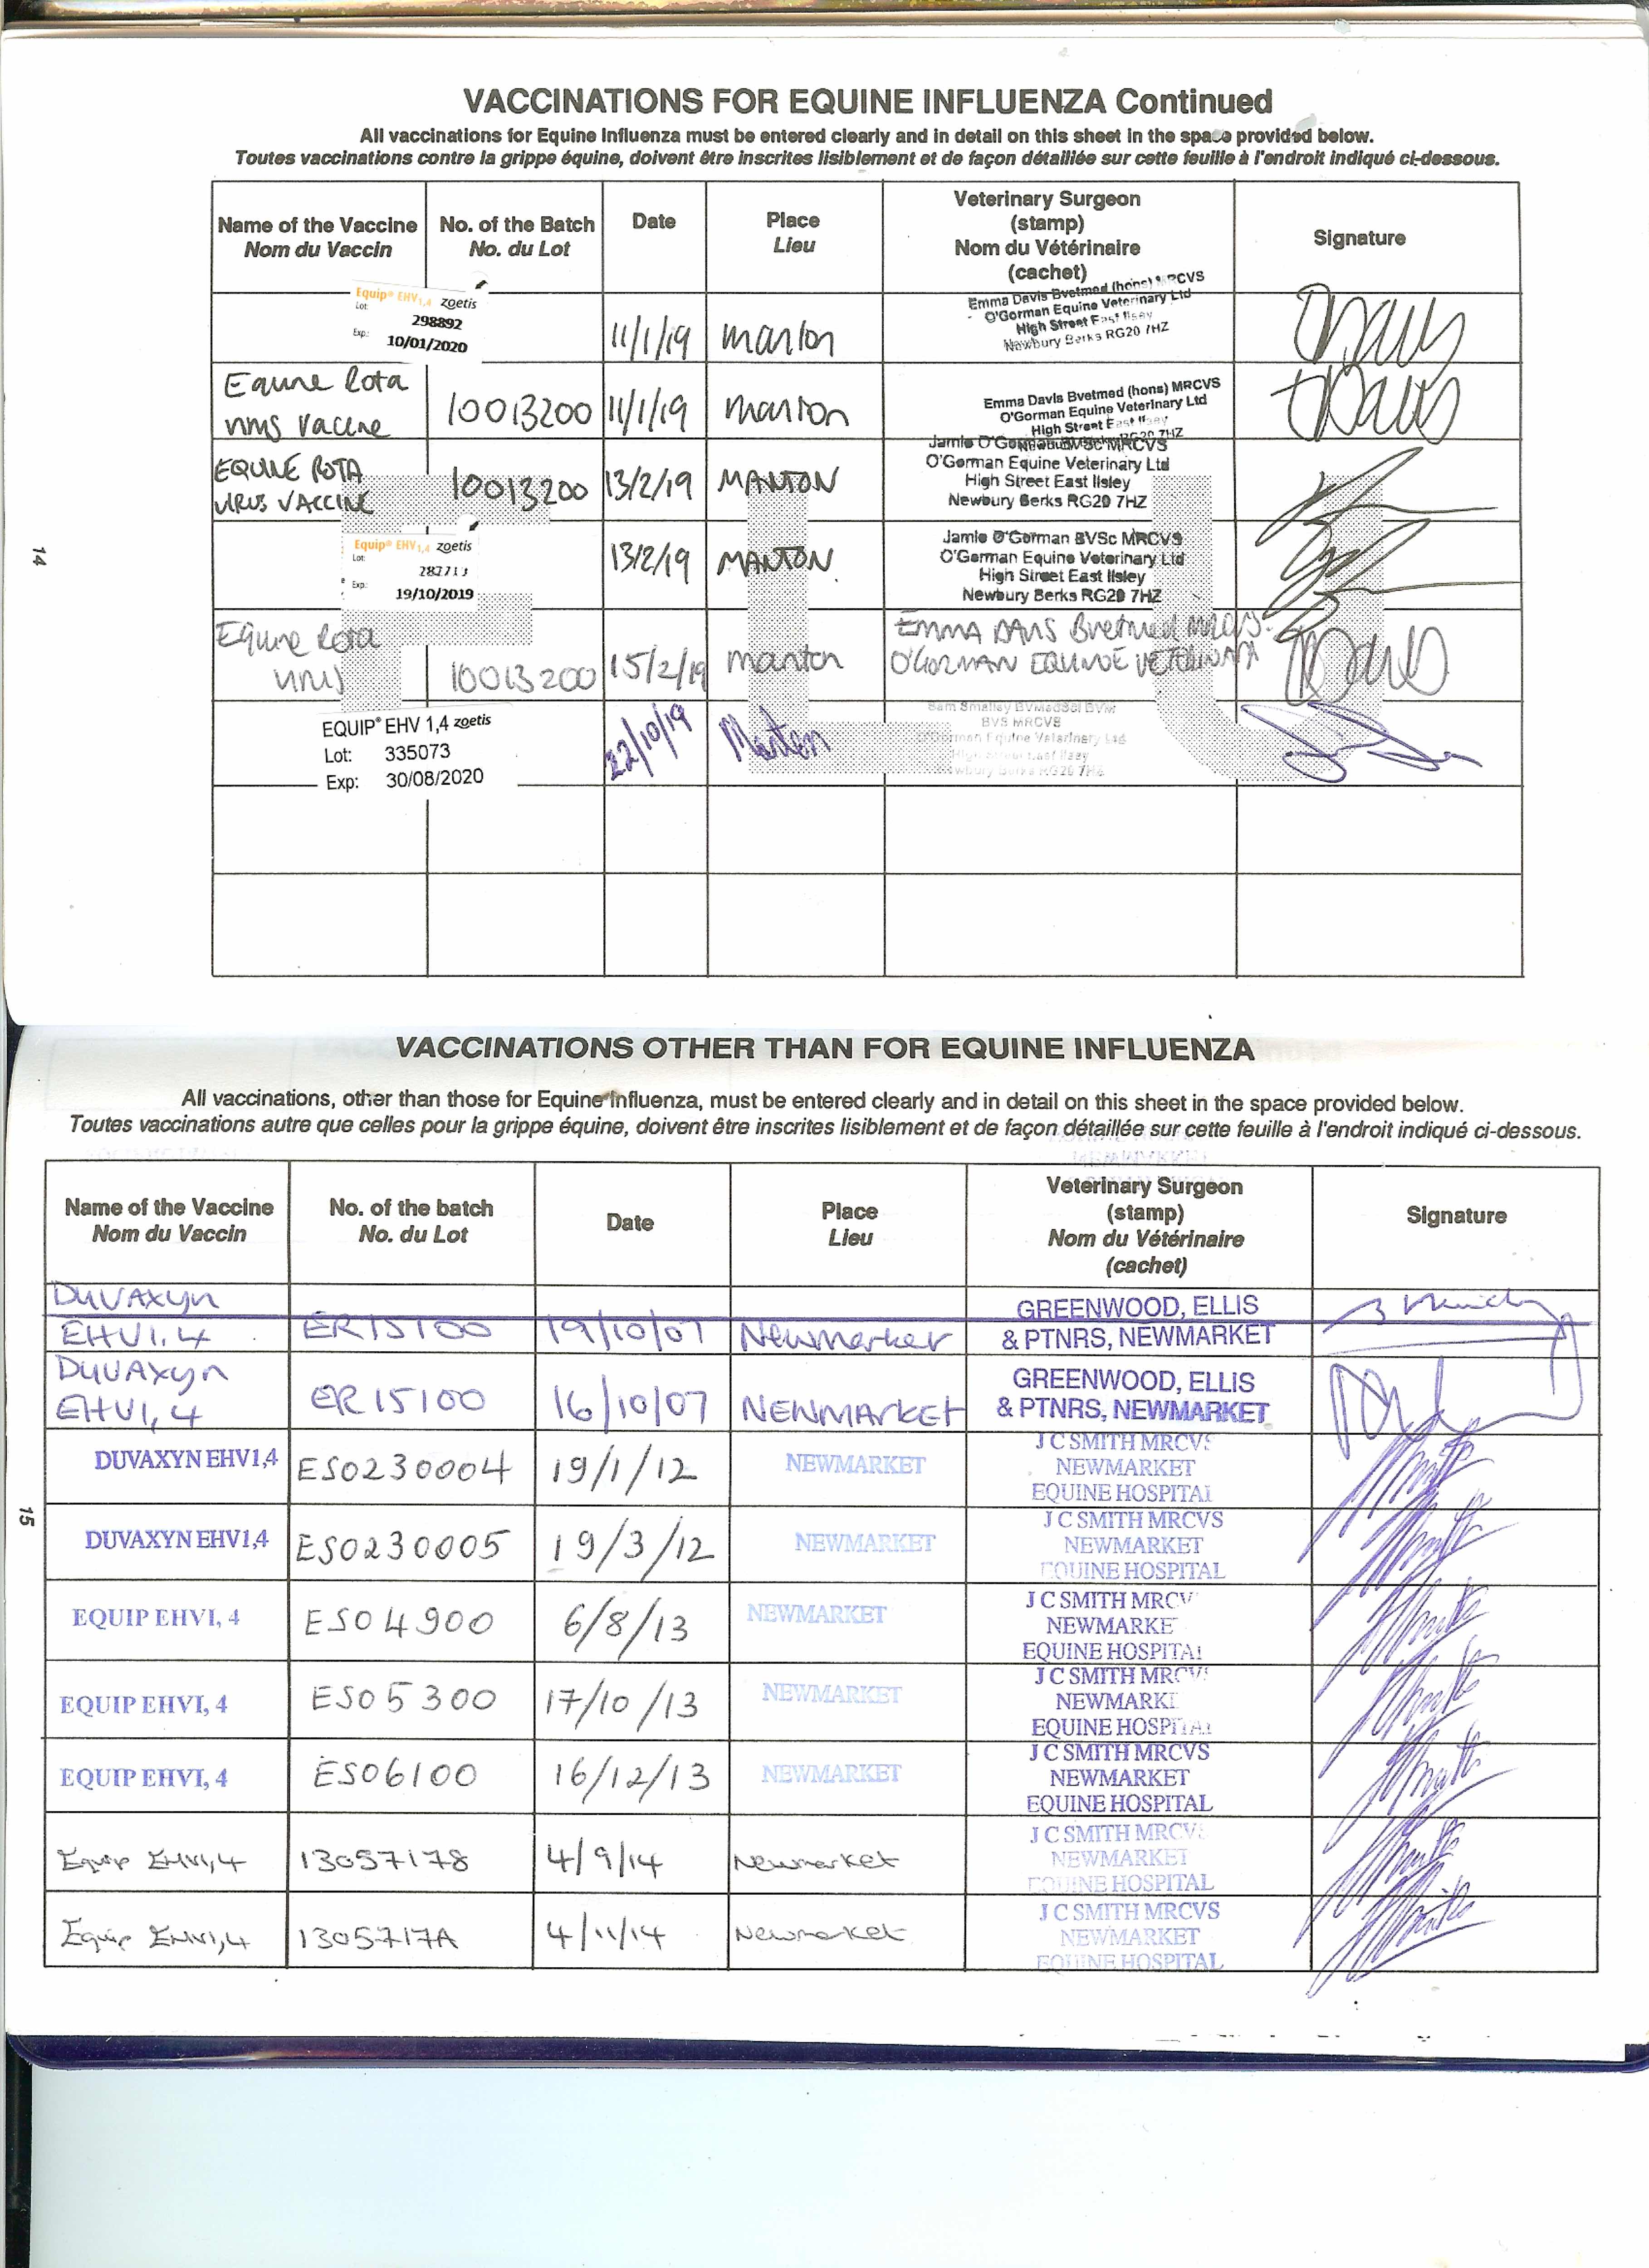 VACCINATIONS FOR EQUINE INFLUENZA Continued
All vaccinations for Equine Influenza must be entered clearly and in detail on this sheet in the space provided below.
Toutes vaccinations contre la grippe équine, doivent être inscrites lisiblement et de façon détaillée sur cette feuille à l'endroit indiqué ci-dessous.
Name of the Vaccine No. of the Batch Date Place Veterinary Surgeon Signature
Nom du Vaccin No. du Lot Lieu (stamp)
Nom du Vétérinaire
(cachet)
Equip® EHV1,4 zoetis
Lot: 298892
Exp: 10/01/2020
11/1/19 manton
Emma Davis Bvetmed (hons) MRCVS
O'Gorman Equine Veterinary Ltd
High Street East Ilsey
Newbury Berks RG20 7HZ
Equine Rota
vaccine 10013200 11/1/19 manton
Emma Davis Bvetmed (hons) MRCVS
O'Gorman Equine Veterinary Ltd
High Street East Ilsey
RG20 7HZ
EQUINE ROTA
VIRUS VACCINE 10013200 13/2/19 MANTON
Jamie O'Gorman BVSc MRCVS
O'Gorman Equine Veterinary Ltd
High Street East Ilsley
Newbury Berks RG20 7HZ
Equip® EHV1,4 zoetis
Lot:
Exp: 19/10/2019
13/2/19 MANTON
Jamie O'Gorman BVSc MRCVS
O'Gorman Equine Veterinary Ltd
High Street East Ilsley
Newbury Berks RG20 7HZ
Equine Rota
10013200 15/2/19 manton
EMMA DAVIS Bvetmed MRCVS
O'GORMAN EQUINE
EQUIP® EHV 1,4 zoetis
Lot: 335073
Exp: 30/08/2020
22/10/19 Manton
Sam Smalley
BVS MRCVS
O'Gorman Equine Veterinary Ltd
High Street East Ilsey
Newbury Berks RG20 7HZ
14
VACCINATIONS OTHER THAN FOR EQUINE INFLUENZA
All vaccinations, other than those for Equine Influenza, must be entered clearly and in detail on this sheet in the space provided below.
Toutes vaccinations autre que celles pour la grippe équine, doivent être inscrites lisiblement et de façon détaillée sur cette feuille à l'endroit indiqué ci-dessous.
Name of the Vaccine No. of the batch Date Place Veterinary Surgeon Signature
Nom du Vaccin No. du Lot Lieu (stamp)
Nom du Vétérinaire
(cachet)
Duvaxyn GREENWOOD, ELLIS
EHV1,4 ER15100 19/10/07 Newmarket & PTNRS, NEWMARKET
Duvaxyn GREENWOOD, ELLIS
EHV1,4 ER15100 16/10/07 NEWMARKET & PTNRS, NEWMARKET
DUVAXYN EHV1,4 ES0230004 19/1/12 NEWMARKET
J C SMITH MRCVS
NEWMARKET
EQUINE HOSPITAL
DUVAXYN EHV1,4 ES0230005 19/3/12 NEWMARKET
J C SMITH MRCVS
NEWMARKET
EQUINE HOSPITAL
EQUIP EHVI, 4 ES04900 6/8/13 NEWMARKET
J C SMITH MRCV
NEWMARKE
EQUINE HOSPITAL
EQUIP EHVI, 4 ES05300 17/10/13 NEWMARKET
J C SMITH MRCVS
NEWMARK
EQUINE HOSPITAL
EQUIP EHVI, 4 ES06100 16/12/13 NEWMARKET
J C SMITH MRCVS
NEWMARKET
EQUINE HOSPITAL
Equip EHV1,4 4/9/14 Newmarket
J C SMITH MRCVS
NEWMARKET
EQUINE HOSPITAL
Equip EHV1,4 1305717A 4/11/14 Newmarket
J C SMITH MRCVS
NEWMARKET
EQUINE HOSPITAL
15